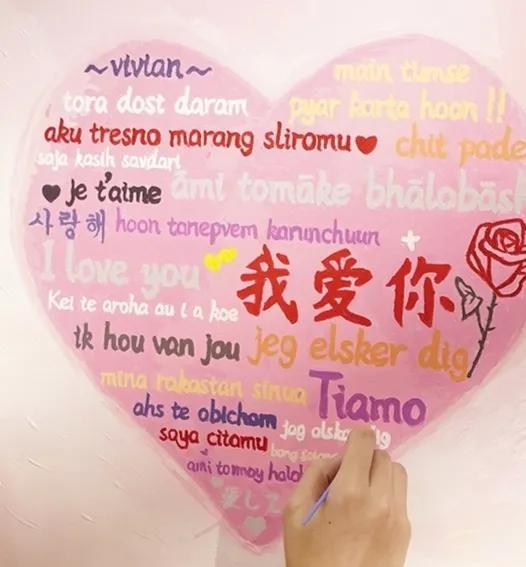 ~vivian~
main tumse
tora dost daram
pyar karta hoon !!
aku tresno marang sliromu
chit pade
saja kasih savdari
je t'aime
āmi tomāke bhālobās
사랑해
hoon tanepvem karunchuun
I love you
我爱你
Kei te aroha au i a koe
ik hou van jou
jeg elsker dig
mina rakastan sinua
Tiamo
ahs te obicham
jag alska dig
saya citamu
bong
ami tomay
愛し